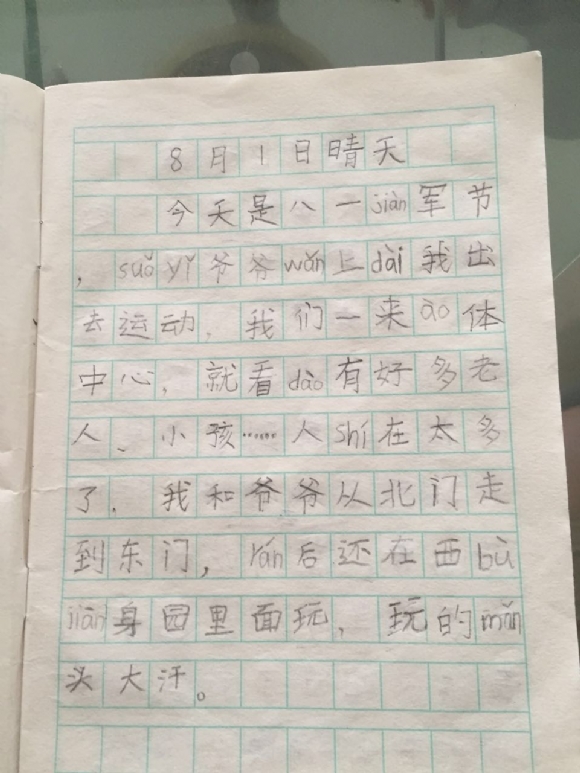 8月1日晴天
今天是八一jiàn军节
，suǒ yǐ爷爷wǎn上dài我出
去运动．我们一来ào体
中心，就看dào有好多老
人、小孩……人shí在太多
了．我和爷爷从北门走
到东门，rán后还在西bù
jiàn身园里面玩，玩的mǎn
头大汗。